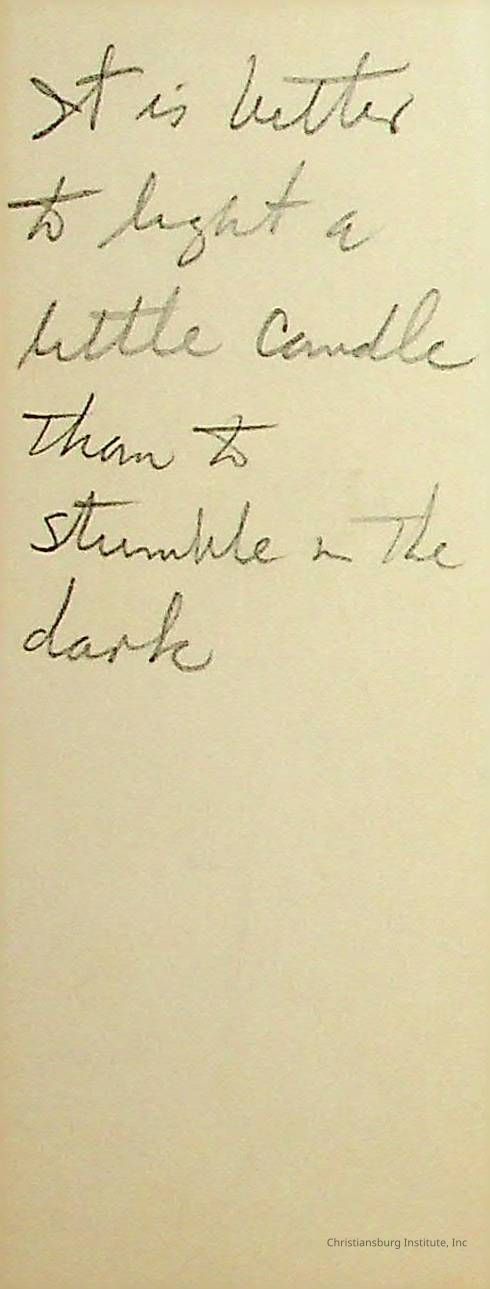 It is better
to light a
little candle
than to
stumble in the
dark
Christiansburg Institute, Inc